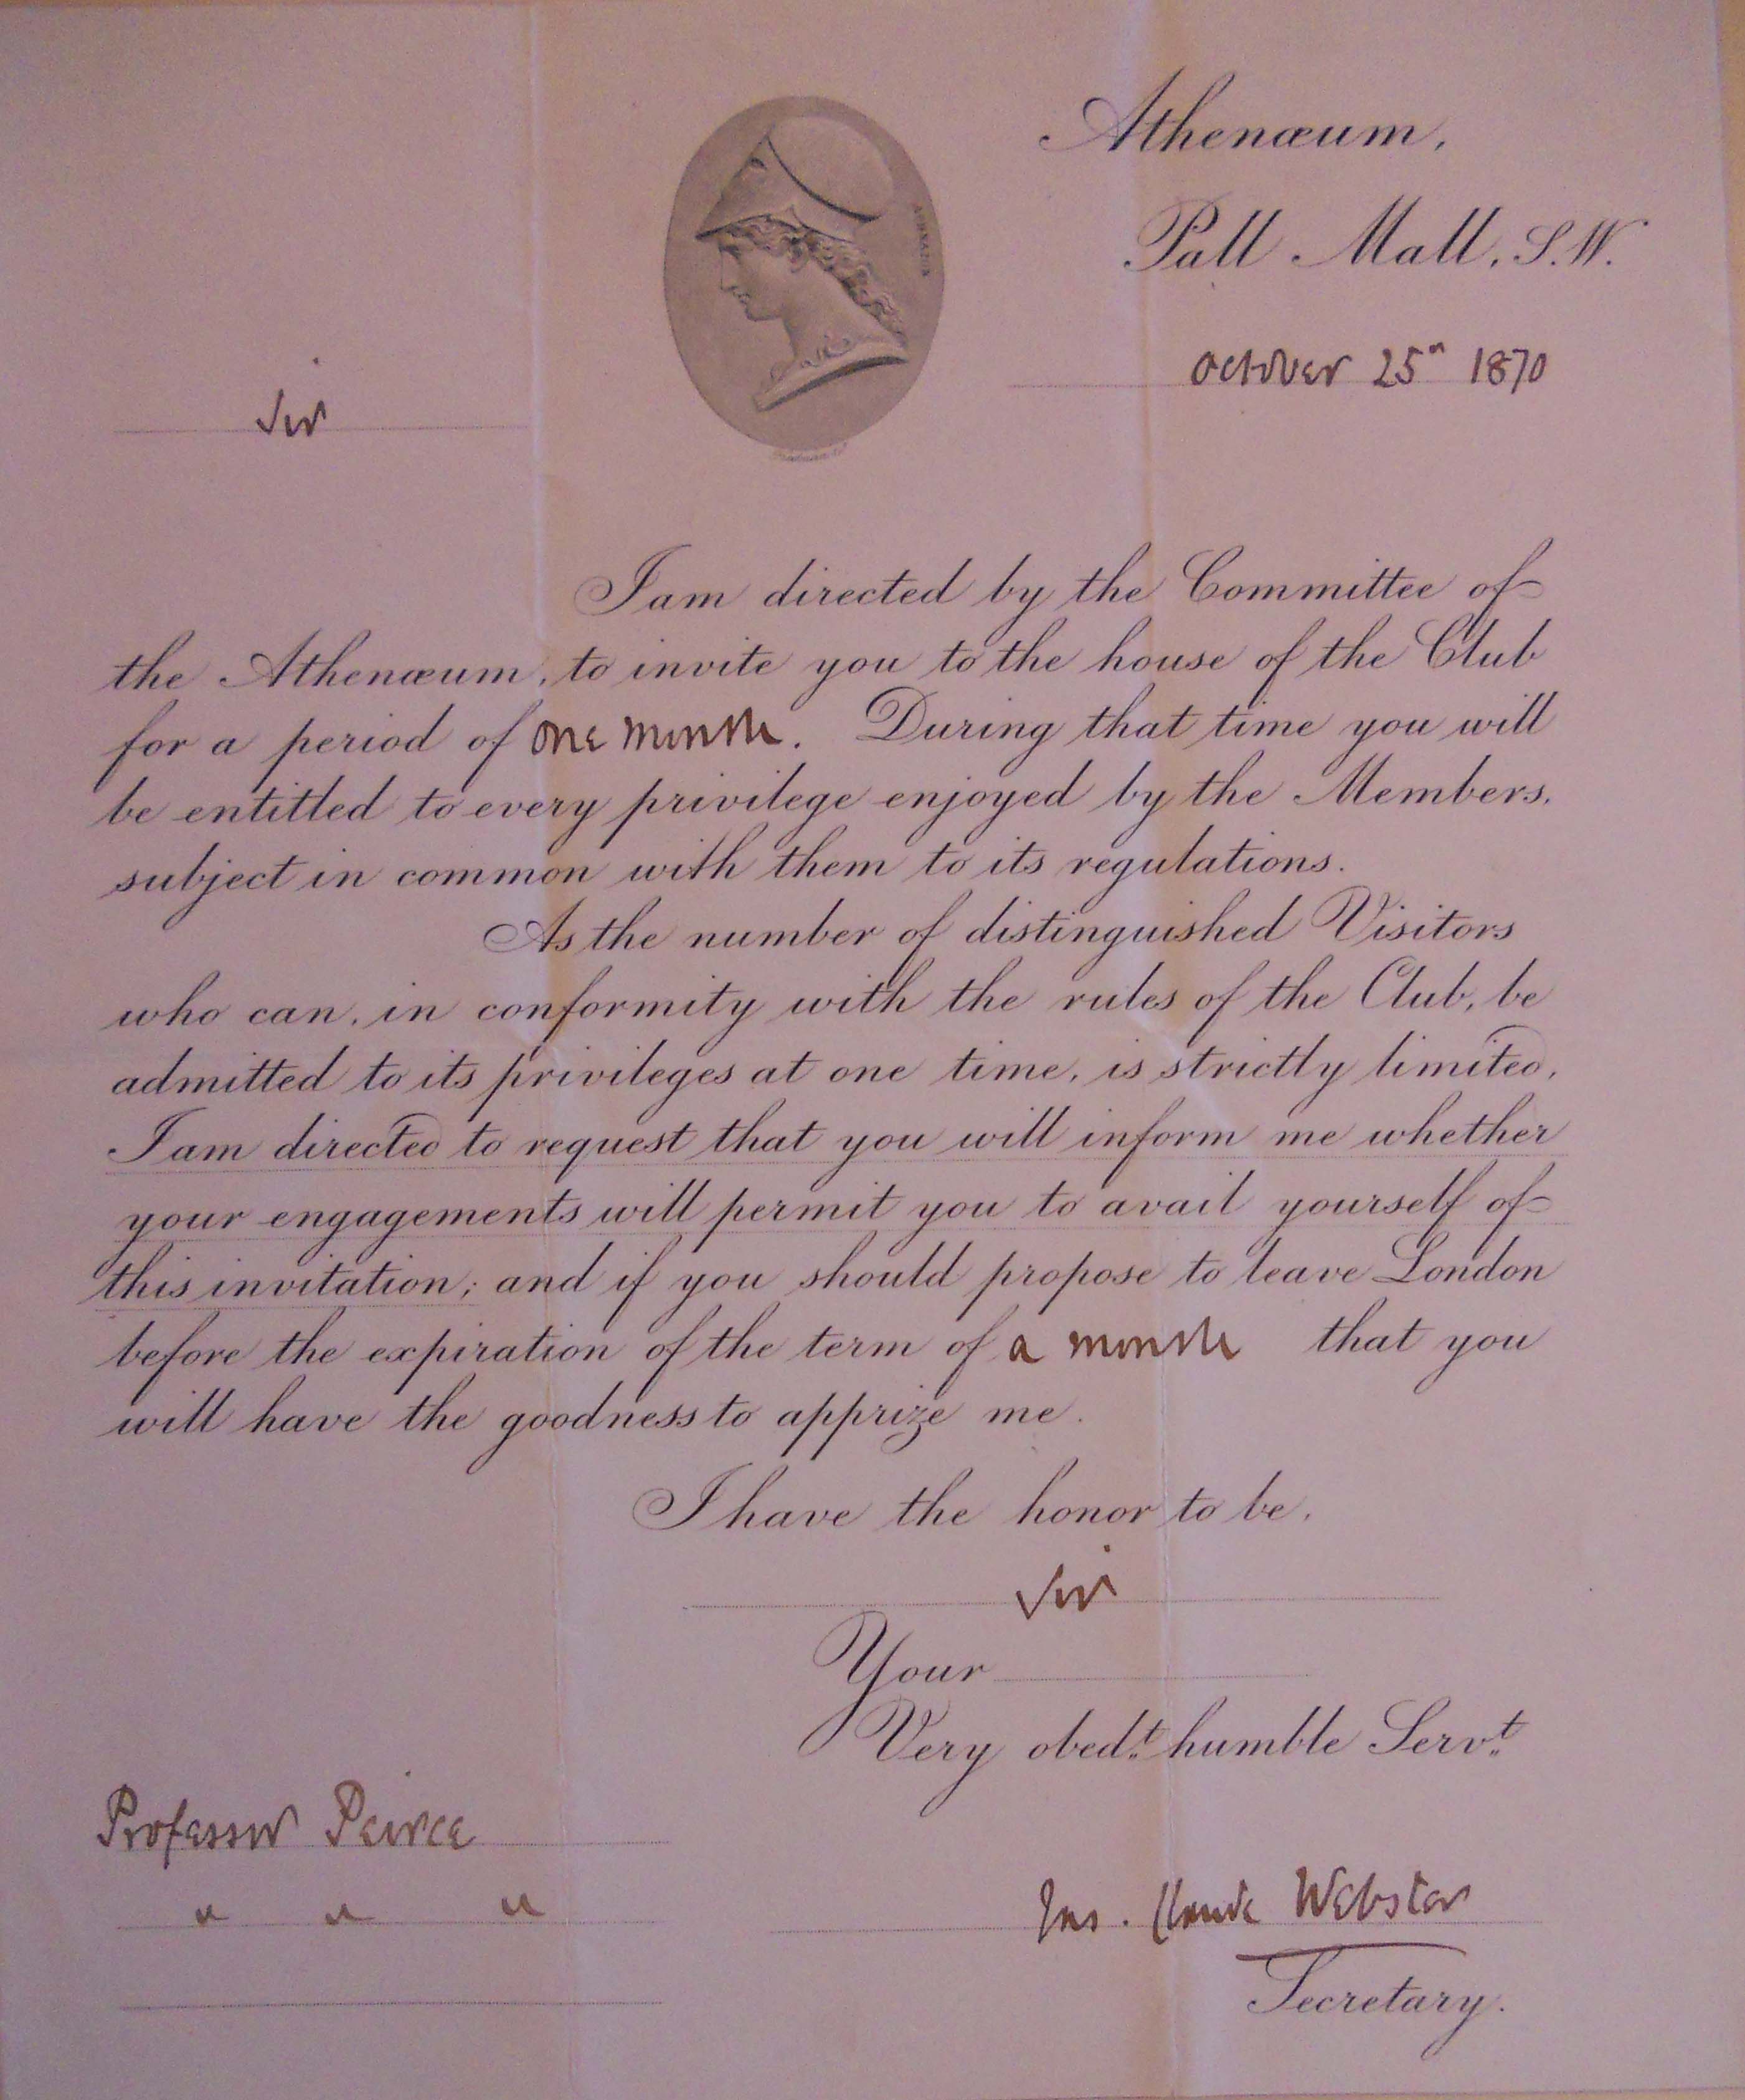 Athenæum,
Pall Mall, S.W.
October 25th 1870
Sir
I am directed by the Committee of
the Athenæum, to invite you to the house of the Club
for a period of one month. During that time you will
be entitled to every privilege enjoyed by the Members,
subject in common with them to its regulations.
As the number of distinguished Visitors
who can, in conformity with the rules of the Club, be
admitted to its privileges at one time, is strictly limited,
I am directed to request that you will inform me whether
your engagements will permit you to avail yourself of
this invitation; and if you should propose to leave London
before the expiration of the term of a month that you
will have the goodness to apprize me.
I have the honor to be,
Sir
Your
Very obedt. humble Servt.
Professor Peirce
" " "
Jas. Claude Webster
Secretary.